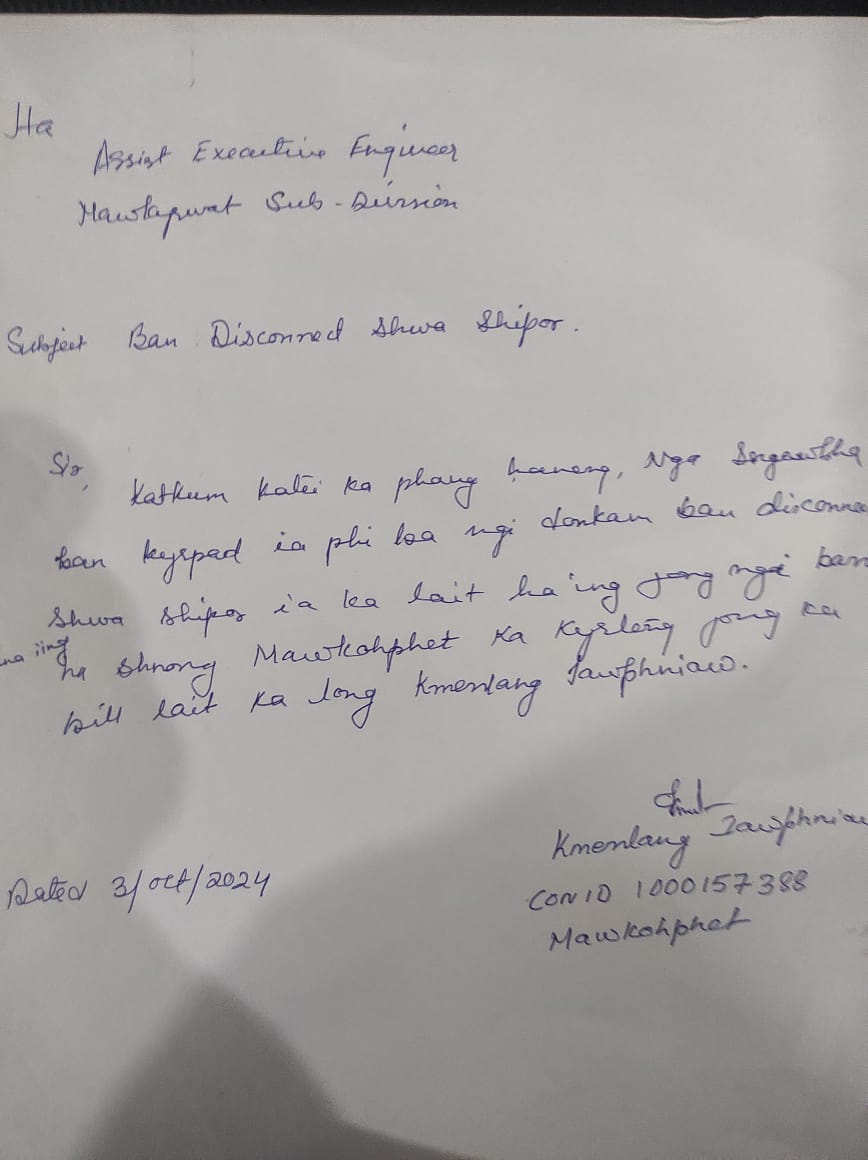 Ha
Assist Executive Engineer
Sub-Division
Subject Ban Disconnect shwa shipor.
Sir,
Katkum katei ka phang haneng, Nga Sngewbha
ban kyrpad ia phi ba ngi donkam ban disconnec
shwa shipor ia ka lait ha ïng jong ngi bam
na iing
ha shnong Mawkohphet Ka Kyrteng jong ka
bill lait ka long Kmenlang Iawphniaw.
Kmenlang Iawphniaw
Dated 3/oct/2024
CON ID 1000157388
Mawkohphet